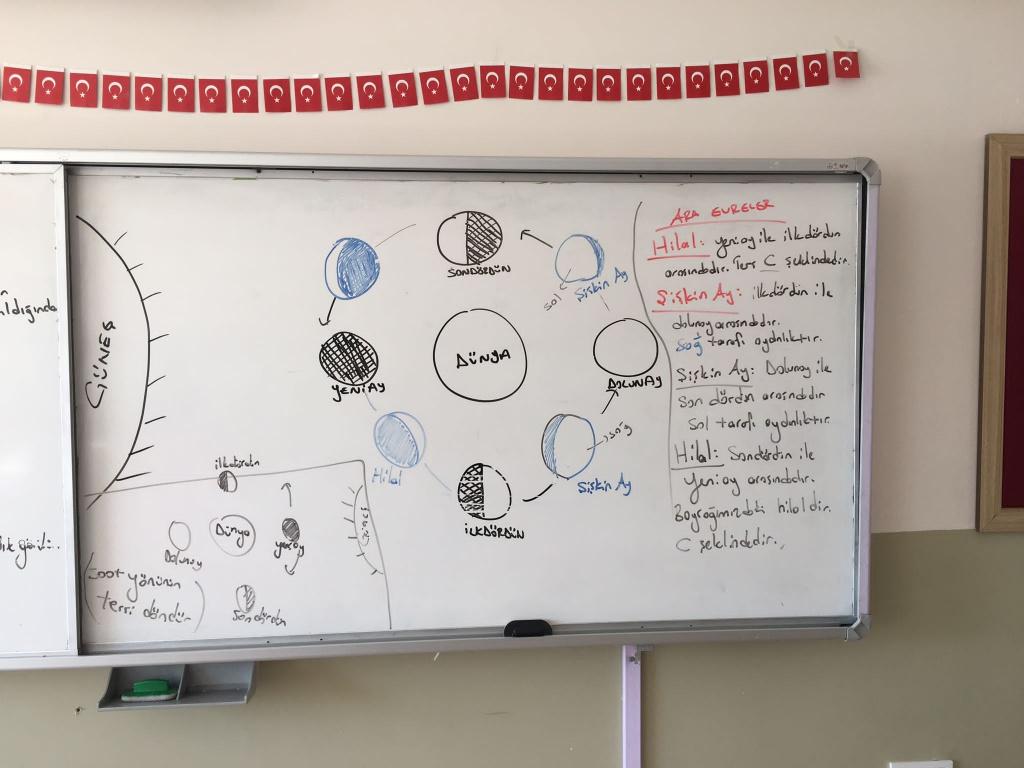 GÜNEŞ
SONDÖRDÜN
Şişkin Ay
sol
YENİAY
DÜNYA
DOLUNAY
Hilal
İLKDÖRDÜN
sağ
Şişkin Ay
ARA EVRELER
Hilal: yeniay ile ilkdördün
arasındadır. Ters C şeklindedir.
Şişkin Ay: ilkdördün ile
dolunay arasındadır.
Sağ tarafı aydınlıktır.
Şişkin Ay: Dolunay ile
Son dördün arasındadır
Sol tarafı aydınlıktır.
Hilal: Sondördün ile
Yeniay arasındadır.
Bayrağımızdaki hilaldir.
C şeklindedir.
ilkdördün
Dünya
Dolunay
yeniay
Güneş
Sondördün
(Saat yönünün
tersi döndür)